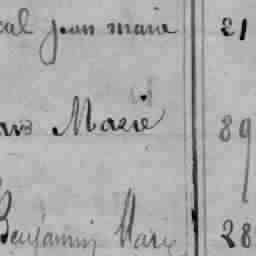 jean marie 21
Marie 89
Benjamin Marie 28